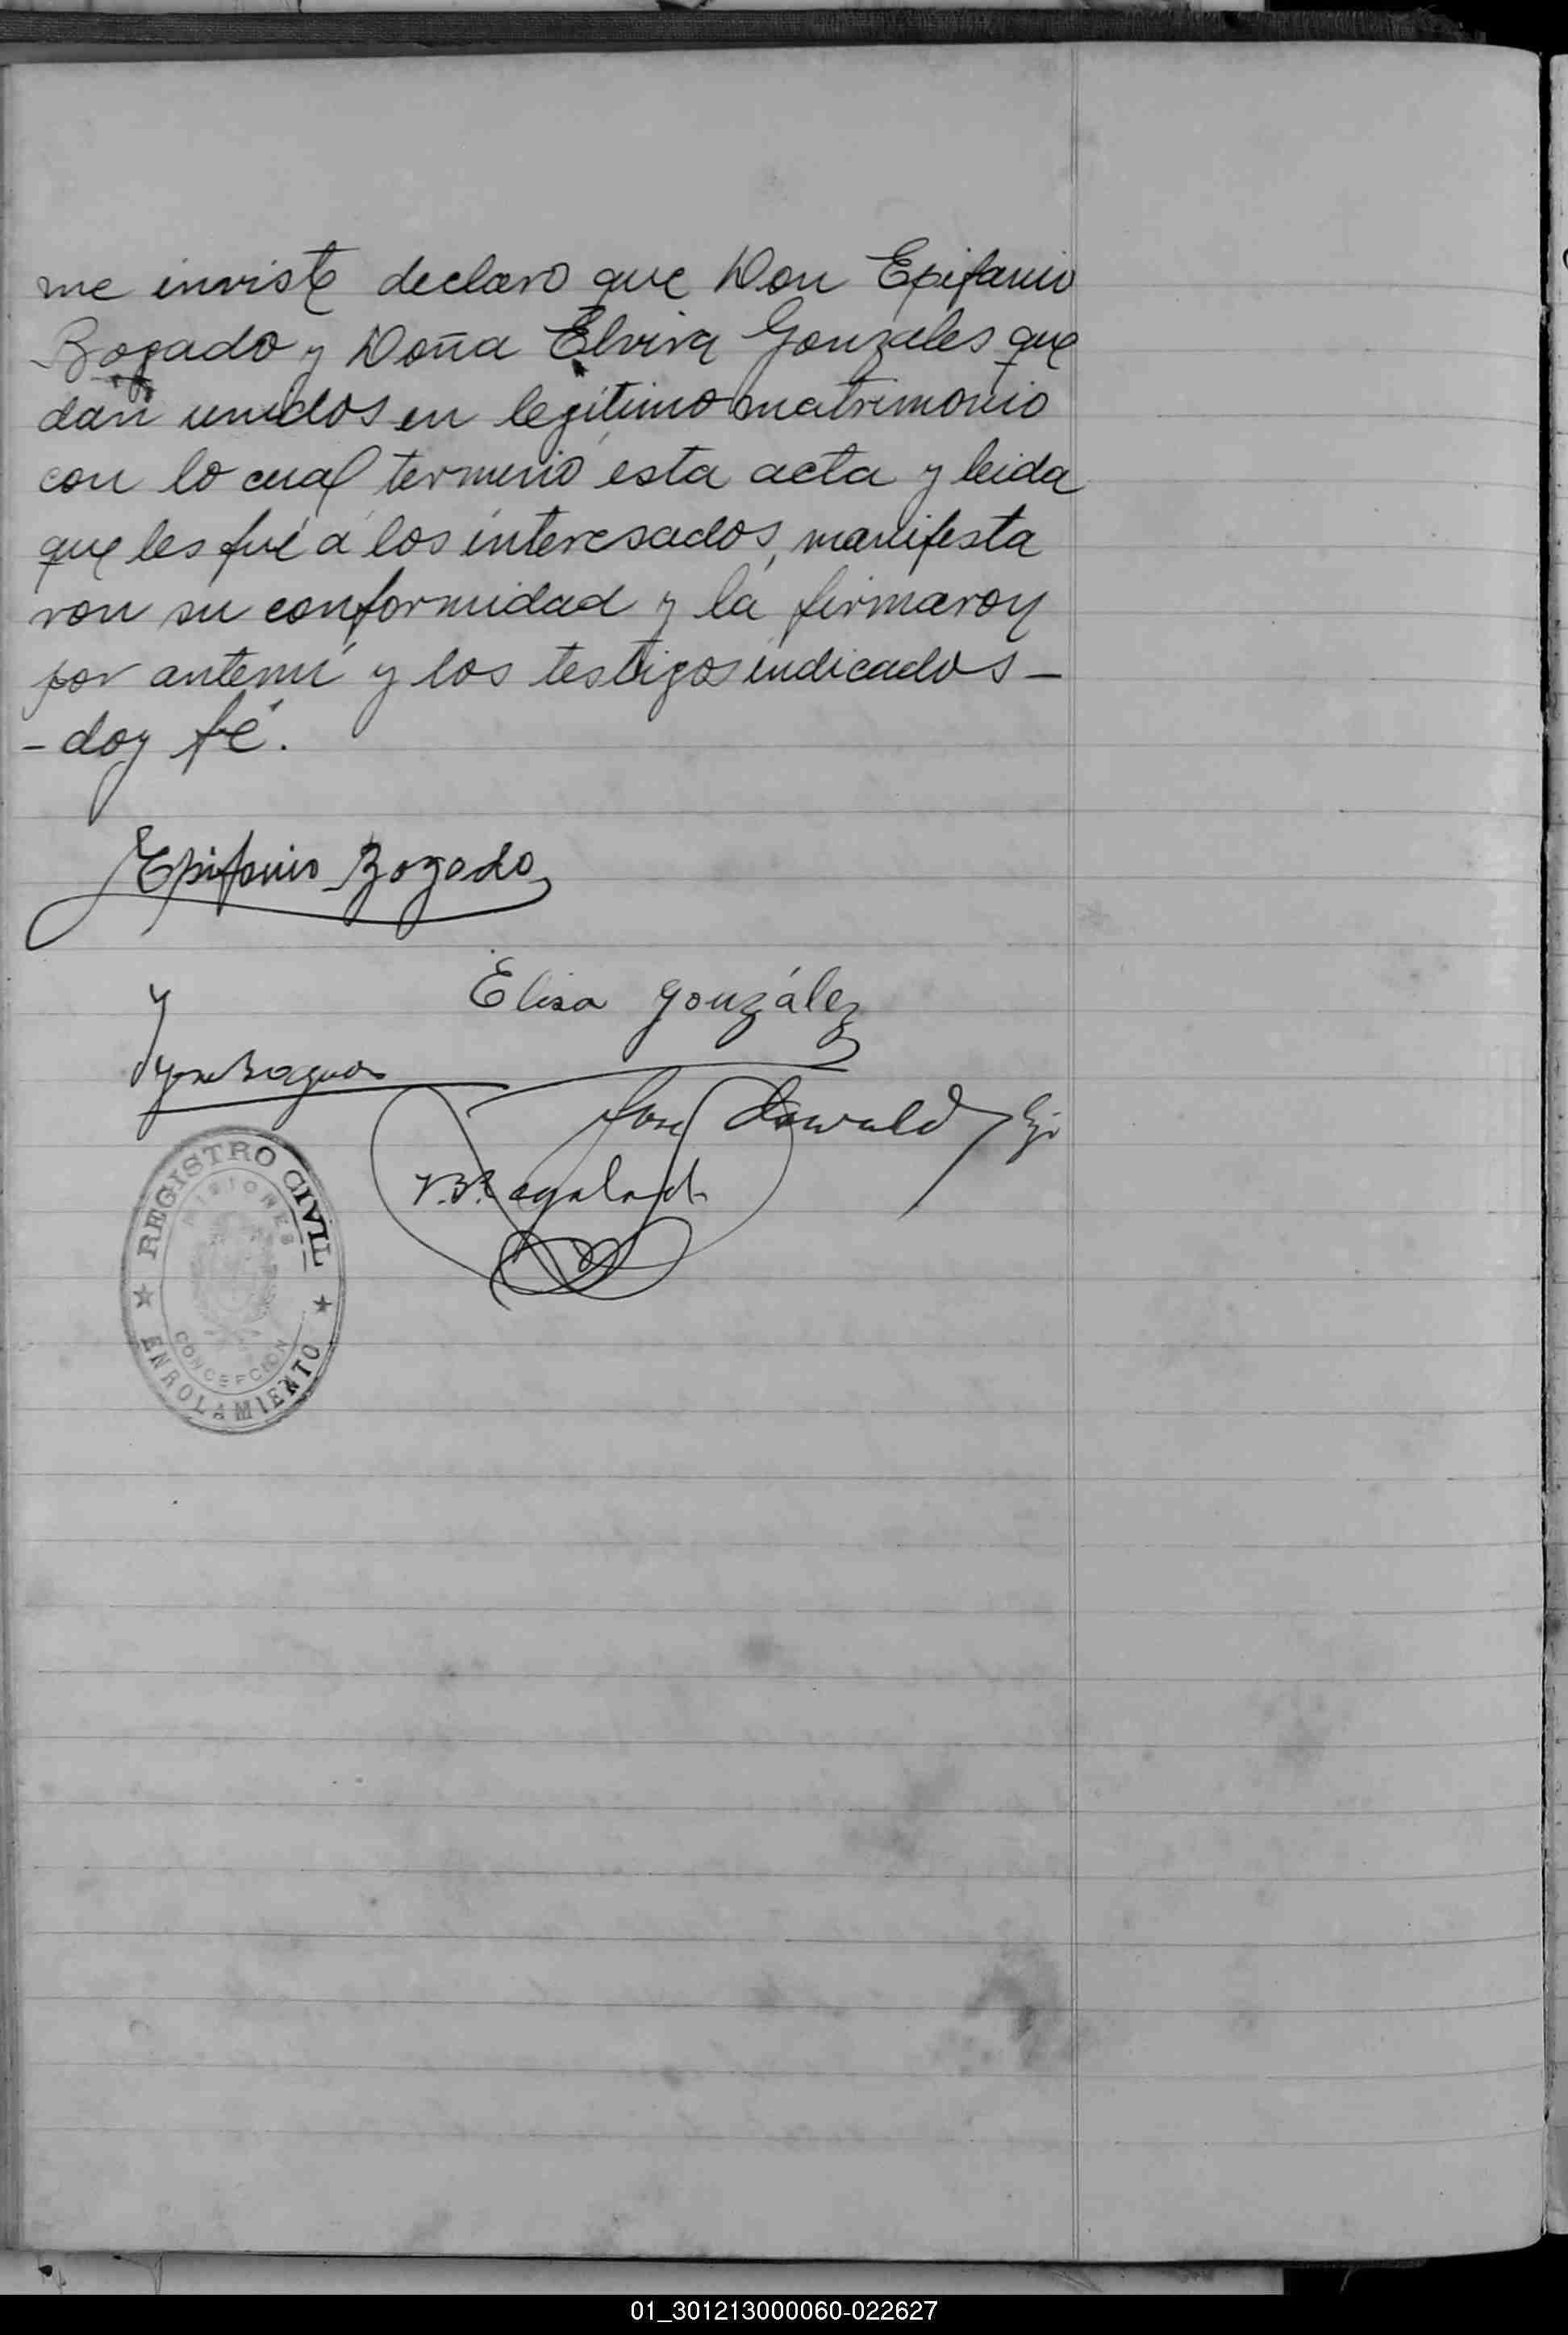 me inviste declaro que Don Epifanio
Bogado y Doña Elvira Gonzales que
dan unidos en legítimo matrimonio
con lo cual terminó esta acta y leida
que les fué á los interesados, manifesta
ron su conformidad y la firmaron
por antemí y los testigos indicados –
– doy fé.
Epifanio Bogado
Elisa González
José Oswald
REGISTRO CIVIL
MISIONES
CONCEPCION
ENROLAMIENTO
01_301213000060-022627